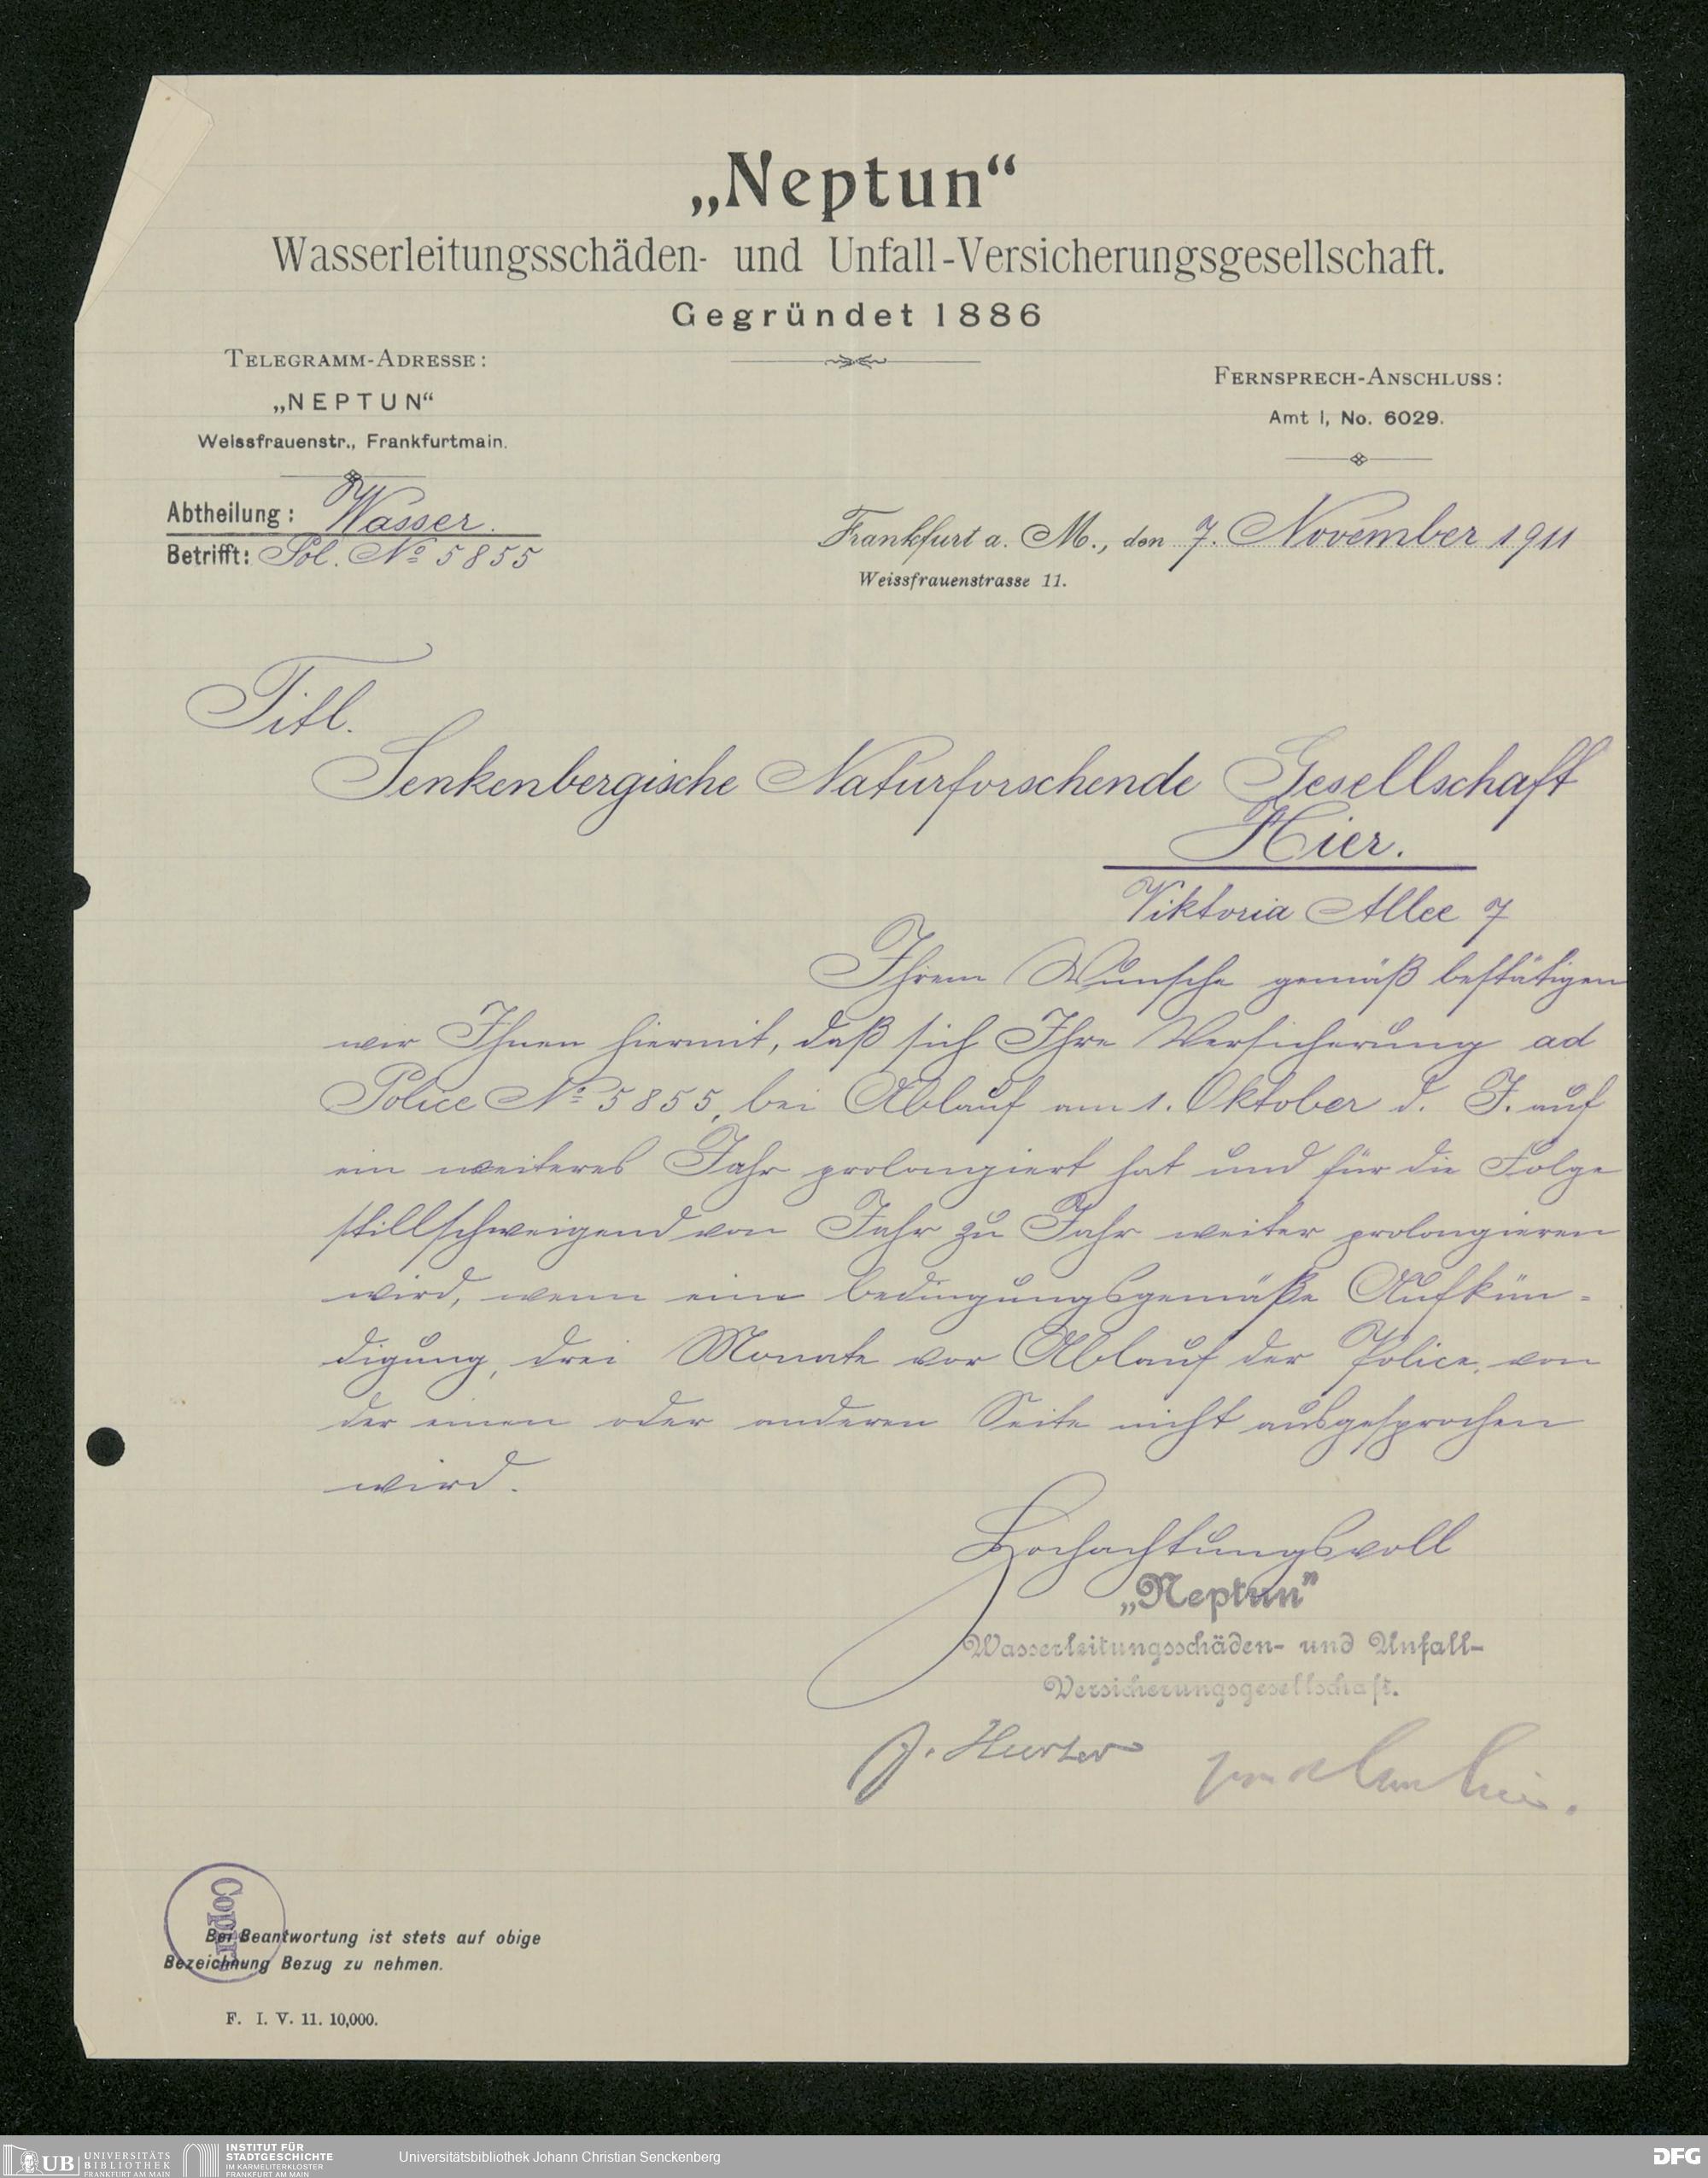 „Neptun“
Wasserleitungsschäden- und Unfall-Versicherungsgesellschaft.
Gegründet 1886
TELEGRAMM-ADRESSE:
„NEPTUN“
Weissfrauenstr., Frankfurtmain.
FERNSPRECH-ANSCHLUSS:
Amt I, No. 6029.
Abtheilung: Wasser.
Betrifft: Pol. No 5855
Frankfurt a. M., den 7. November 1911
Weissfrauenstrasse 11.
Titl.
Senkenbergische Naturforschende Gesellschaft
Hier.
Viktoria Allee 7
Ihrem Wunsche gemäß bestätigen
wir Ihnen hiermit, daß sich Ihre Versicherung ad
Police No 5855, bei Ablauf am 1. Oktober d. J. auf
ein weiteres Jahr prolongiert hat und für die Folge
stillschweigend von Jahr zu Jahr weiter prolongieren
wird, wenn eine bedingungsgemäße Aufkün-
digung, drei Monate vor Ablauf der Police, von
der einen oder anderen Seite nicht ausgesprochen
wird.
Hochachtungsvoll
„Neptun”
Wasserleitungsschäden- und Unfall-
Versicherungsgesellschaft.
Copirt
Bei Beantwortung ist stets auf obige
Bezeichnung Bezug zu nehmen.
F. I. V. 11. 10,000.
UB UNIVERSITÄTS
BIBLIOTHEK
FRANKFURT AM MAIN
INSTITUT FÜR
STADTGESCHICHTE
IM KARMELITERKLOSTER
FRANKFURT AM MAIN
Universitätsbibliothek Johann Christian Senckenberg
DFG